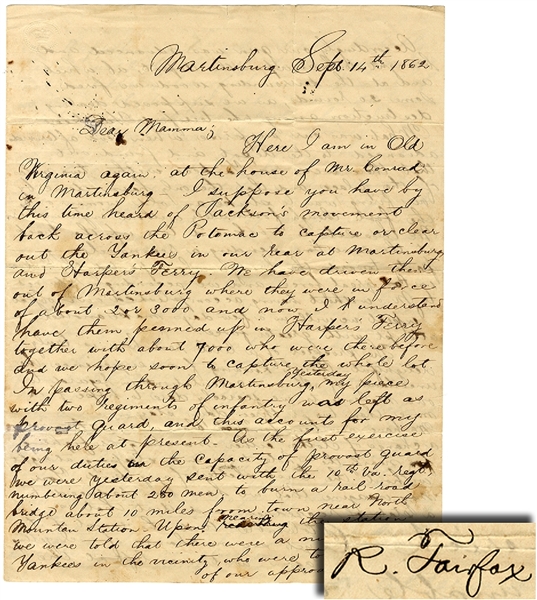 Martinsburg Sept 14th 1862
Dear Mamma;
Here I am in Old
Virginia again at the house of Mr Conrad
in Martinsburg - I suppose you have by
this time heard of Jackson's movement
back across the Potomac to capture or clear
out the Yankees in our rear at Martinsburg
and Harpers Ferry We have driven them
out of Martinsburg where they were in force
of about 2 or 3000 and now, I understand
have them penned up in Harpers Ferry
together with about 7000 who were there before
and we hope soon to capture the whole lot
In passing through Martinsburg, yesterday my piece
with two regiments of infantry was left as
provost guard, and this accounts for my
being here at present - As the first exercise
of our duties in the capacity of provost guard
we were yesterday sent with the 10th Va. Regt
numbering about 250 men to burn a rail road
bridge about 10 miles from town near North
Mountan Station. Upon nearing the
we were told that there were a
Yankees in the vicinity, who were
of our
R. Fairfax